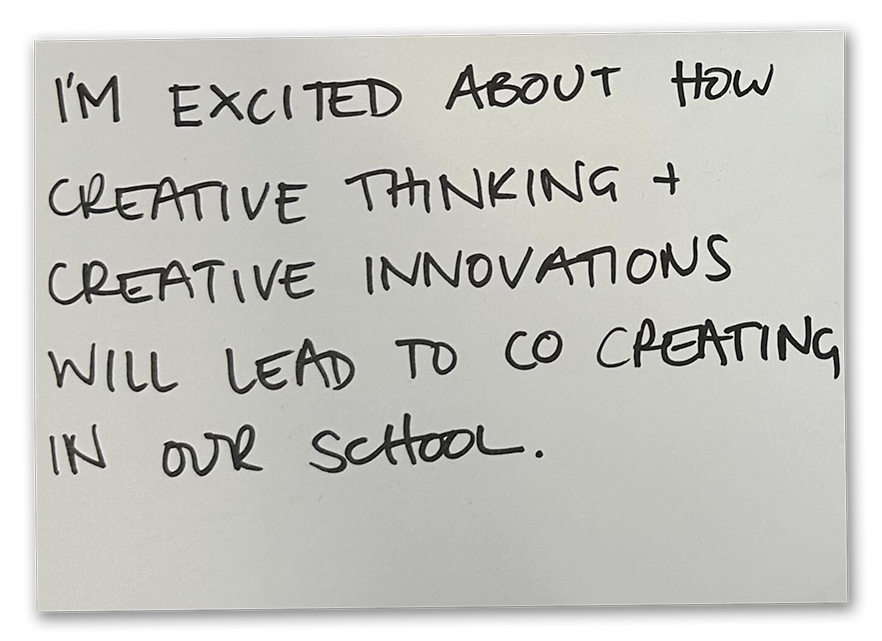 I'M EXCITED ABOUT HOW
CREATIVE THINKING +
CREATIVE INNOVATIONS
WILL LEAD TO CO CREATING
IN OUR SCHOOL.